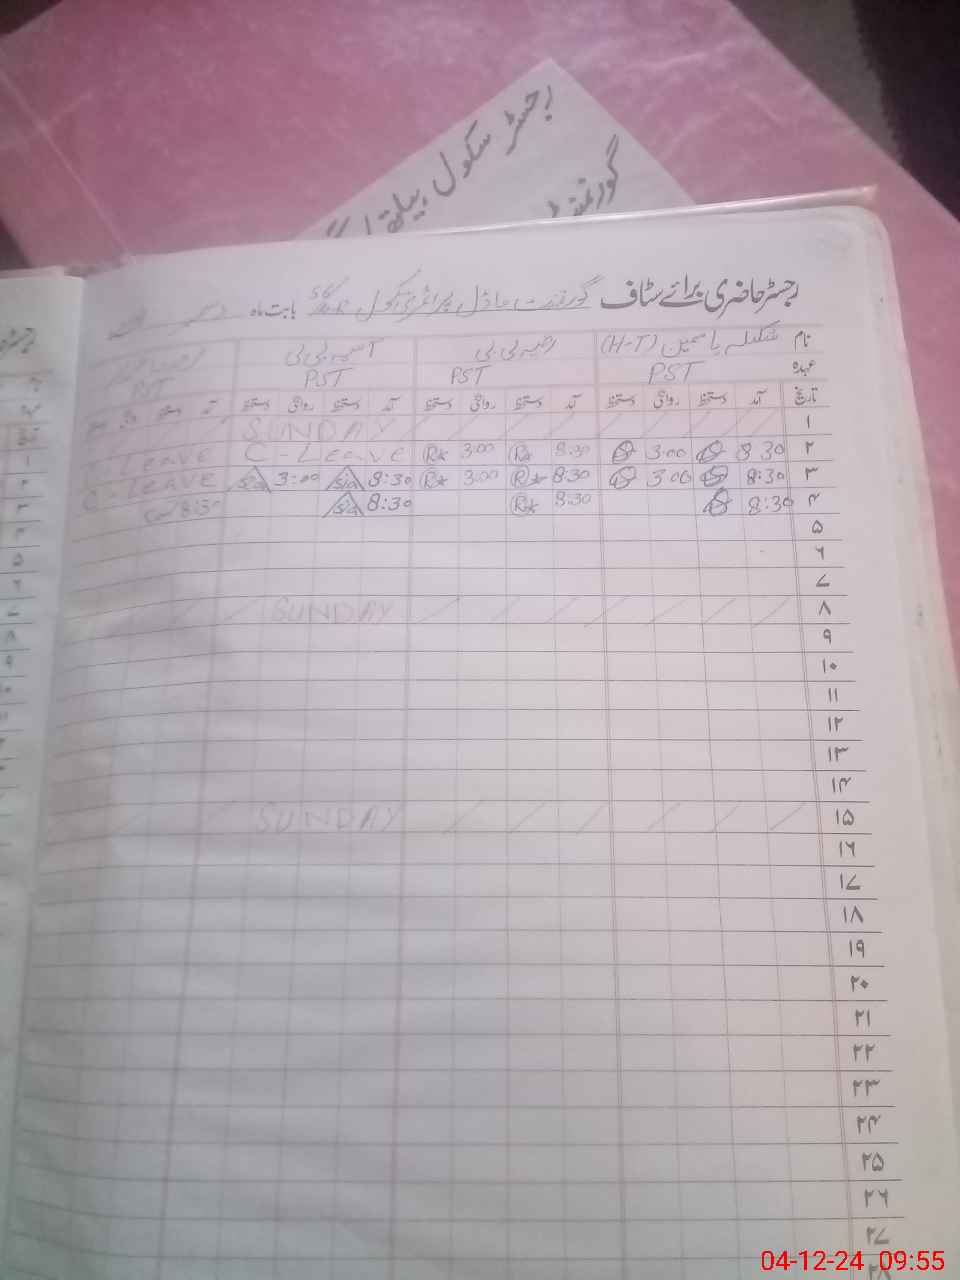 رجسٹر سکول ہیلتھ
گورنمنٹ
رجسٹر حاضری برائے سٹاف گورنمنٹ ماڈل پرائمری سکول 56 بابت ماہ دسمبر
نام شکیلہ یاسمین (H-T) رضیہ بی بی آسیہ بی بی
عہدہ PST PST PST PST
تاریخ آمد دستخط روانگی دستخط آمد دستخط روانگی دستخط آمد دستخط روانگی دستخط آمد دستخط روانگی دستخط
۱ SUNDAY
۲ 8:30 3:00 8:30 R* 3:00 R* C-Leave Leave
۳ 8:30 3:00 8:30 R* 3:00 R* 8:30 Sia 3:00 Sia C-Leave
۴ 8:30 8:30 R* 8:30 Sia 8:30
۵
۶
۷
۸ SUNDAY
۹
۱۰
۱۱
۱۲
۱۳
۱۴
۱۵ SUNDAY
۱۶
۱۷
۱۸
۱۹
۲۰
۲۱
۲۲
۲۳
۲۴
۲۵
۲۶
۲۷
۲۸
04-12-24 09:55